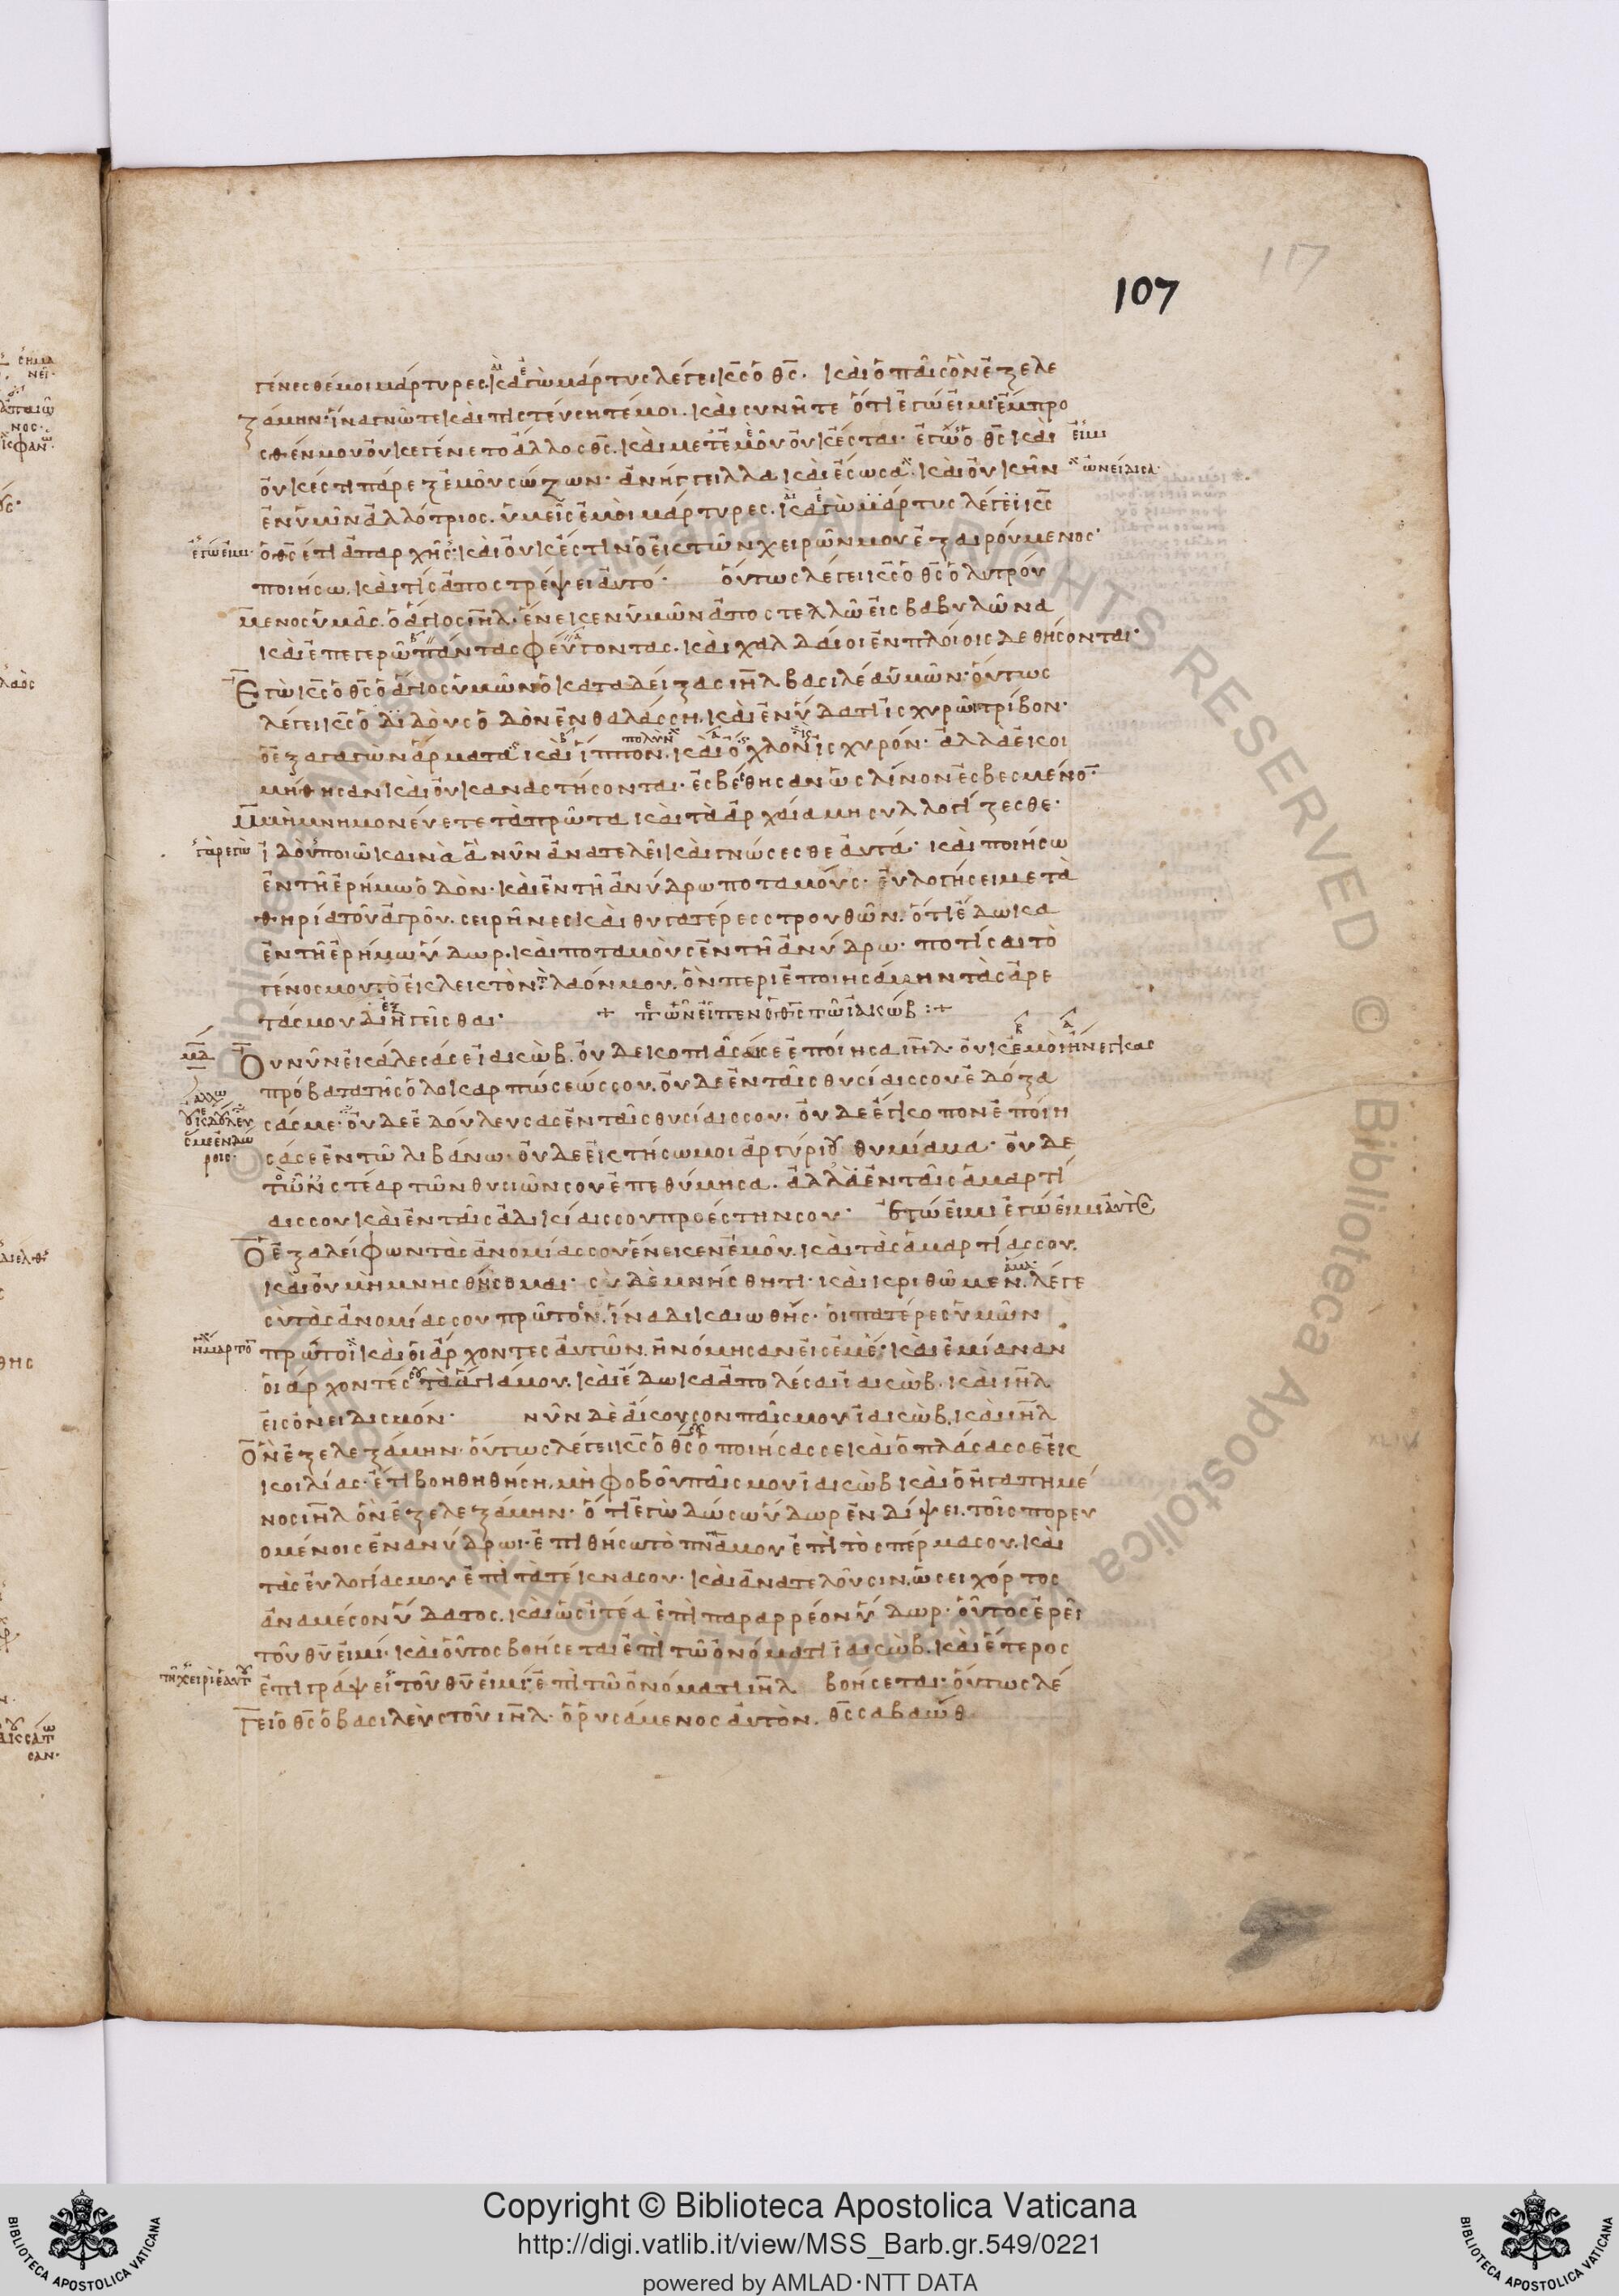 107
γένεσθέ μοι μάρτυρες. καγὼ μάρτυς λέγει κ̅ς̅ ὁ θ̅ς̅. καὶ ὁ παῖς ὃν ἐξελε
ξάμην· ἵνα γνῶτε καὶ πιστεύσητέ μοι. καὶ συνῆτε ὅτι ἐγώ εἰμι· ἔμπρο
σθέν μου οὐκ ἐγένετο ἄλλος θ̅ς̅. καὶ μετ ἐμὲ οὐκ ἔσται· ἐγὼ ὁ θ̅ς̅ καὶ
οὐκ ἔστι πάρεξ ἐμοῦ σώζων· ἀνήγγειλα καὶ ἔσωσα. καὶ οὐκ ἦν
ἐν ὑμῖν ἀλλότριος. ὑμεῖς ἐμοὶ μάρτυρες. καγὼ μάρτυς λέγει κ̅ς̅
ὁ θ̅ς̅ ἔτι ἀπαρχῆς· καὶ οὐκ ἔστιν ὁ ἐκ τῶν χειρῶν μου ἐξαιρούμενος·
ποιήσω. καὶ τίς ἀποστρέψει αὐτό· οὕτως λέγει κ̅ς̅ ὁ θ̅ς̅ ὁ λυτρού
μενος ὑμᾶς. ὁ ἅγιος ι̅η̅λ̅. ἕνεκεν ὑμῶν ἀποστελλῶ εἰς βαβυλῶνα
καὶ ἐπεγερῶ πάντας φεύγοντας. καὶ χαλδαῖοι ἐν πλοίοις δεθήσονται·
Ἐγὼ κ̅ς̅ ὁ θ̅ς̅ ὁ ἅγιος ὑμῶν ὁ καταδείξας ι̅η̅λ̅ βασιλέα ὑμῶν· οὕτως
λέγει κ̅ς̅ ὁ διδοὺς ὁδὸν ἐν θαλάσση. καὶ ἐν ὕδατι ἰσχυρῶ τρίβον·
ὁ ἐξαγαγὼν ἅρματα καὶ ἵππον. καὶ ὄχλον ἰσχυρόν· ἀλλὰ ἐκοι
μήθησαν καὶ οὐκ αναστήσονται· ἐσβέσθησαν ὡς λίνον ἐσβεσμένο̅
Μὴ μνημονεύετε τὰ πρῶτα καὶ τὰ ἀρχαῖα μη συλλογίζεσθε·
ἰδοὺ ποιῶ καινὰ ἃ νῦν ἀνατελεῖ καὶ γνώσεσθε αὐτά· καὶ ποιήσω
ἐν τῆ ἐρήμω ὁδὸν· καὶ ἐν τῆ ἀνύδρω ποταμούς· εὐλογήσει με τὰ
θηρία τοῦ ἀγροῦ. σειρῆνες καὶ θυγατέρες στρουθῶν. ὅτι ἔδωκα
ἐν τῆ ἐρήμω ὕδωρ. καὶ ποταμοὺς ἐν τῆ ἀνύδρω· ποτίσαι τὸ
γένος μου τὸ ἐκλεκτὸν. λαόν μου. ὃν περιεποιησάμην τὰς ἀρε
τάς μου διηγεῖσθαι· + πῶν εἶπεν ὁ θ̅ς̅ τῶ ἰακώβ :+
μδ Οὐ νῦν ἐκάλεσά σε ἰακώβ. οὐδε κοπιᾶσαί σε ἐποίησα ι̅η̅λ̅. οὐκ ἐμοὶ ἤνεγκας
πρόβατα τῆς ὁλοκαρπώσεώς σου. οὐδε ἐν ταῖς θυσίαις σου ἐδόξα
σάς με· οὐδε ἐδούλευσας ἐν ταῖς θυσίαις σου. οὐδε ἔγκοπον ἐποίη
σά σε ἐν τῶ λιβάνω· οὐδε ἐκτήσω μοι ἀργύριου θυμίαμα· οὐδε
τῶν στέαρ τῶν θυσιῶν σου ἐπεθύμησα. ἀλλὰ ἐν ταῖς ἁμαρτί
αις σου καὶ ἐν ταῖς ἀδικίαις σου προέστην σου· ἐγώ εἰμι ἐγώ εἰμι αὐτὸς
Ὁ ἐξαλείφων τὰς ἀνομίας σου ἕνεκεν ἐμοῦ. καὶ τὰς ἁμαρτίας σου.
καὶ οὐ μὴ μνησθήσομαι· σὺ δὲ μνήσθητι· καὶ κριθῶμεν. λέγε
σὺ τὰς ἀνομίας σου πρῶτον. ἵνα δικαιωθῆς· οἱ πατέρες ὑμῶν
πρῶτοι καὶ οἱ ἄρχοντες αὐτῶν. ἠνόμησαν εἰς ἐμέ· καὶ ἐμίαναν
οἱ άρχοντές τὰ ἅγιά μου. καὶ ἔδωκα ἀπολέσαι ἰακώβ. καὶ ι̅η̅λ̅
εἰς ὀνειδισμόν· νῦν δὲ ἄκουσον παῖς μου ἰακώβ. καὶ ι̅η̅λ̅
Ὃν ἐξελεξάμην· οὕτως λέγει κ̅ς̅ ὁ θ̅ς̅ ὁ ποιήσας σε καὶ ὁ πλάσας σε ἐκ
κοιλίας· ἔτι βοηθηθήση. μὴ φοβοῦ παῖς μου ἰακώβ καὶ ὁ ἠγαπημέ
νος ι̅η̅λ̅ ὃν ἐξελεξάμην· ὅτι ἐγὼ δώσω ὕδωρ ἐν δίψει. τοῖς πορευ
ομένοις ἐν ανύδρωι· ἐπιθήσω τὸ π̅ν̅α̅ μου ἐπὶ τὸ σπέρμα σου. καὶ
τὰς εὐλογίας μου ἐπὶ τὰ τέκνα σου· καὶ ἀνατελοῦσιν. ὡσει χόρτος
ἀναμέσον ὕδατος. καὶ ὡς ἰτέα ἐπὶ παραρρέον ὕδωρ· οὗτος ἐρεῖ
τοῦ θ̅υ̅ εἰμί· καὶ οὗτος βοήσεται ἐπὶ τῶ ὀνόματι ἰακώβ. καὶ ἕτερος
ἐπιγράψει τοῦ θ̅υ̅ εἰμί· ἐπὶ τῶ ὀνόματι ι̅η̅λ̅ βοήσεται· οὕτως λέ
γει ὁ θ̅ς̅ ὁ βασιλεὺς τοῦ ι̅η̅λ̅. ὁ ῥυσάμενος αὐτὸν. θ̅ς̅ σαβαώθ
Copyright © Biblioteca Apostolica Vaticana
http://digi.vatlib.it/view/MSS_Barb.gr.549/0221
powered by AMLAD·NTT DATA